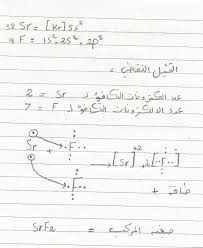 38 Sr = [Kr] 5s²
9 F = 1S², 2S², 2P⁵
التمثيل النقطي =
عدد الكترونات التكافؤ لـ Sr = 2
عدد الالكترونات التكافؤ لـ F = 7
Sr + ·F·· → [Sr]⁺² [··F··]
·F··
طاقة +
صيغة المركب = SrF2